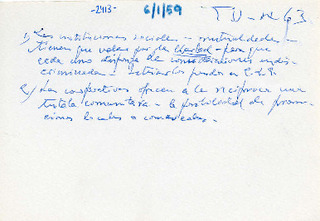 -2413- 6/1/59 TU-Nº 63.
1) Las instituciones sociales - mutualidades -
tienen que velar por la libertad - para que
cada uno disponga de consideraciones indis-
criminadas -
2) Las cooperativas ofrecen a la recíproca una
tutela comunitaria - la posibilidad de promo-
ciones locales o comarcales -